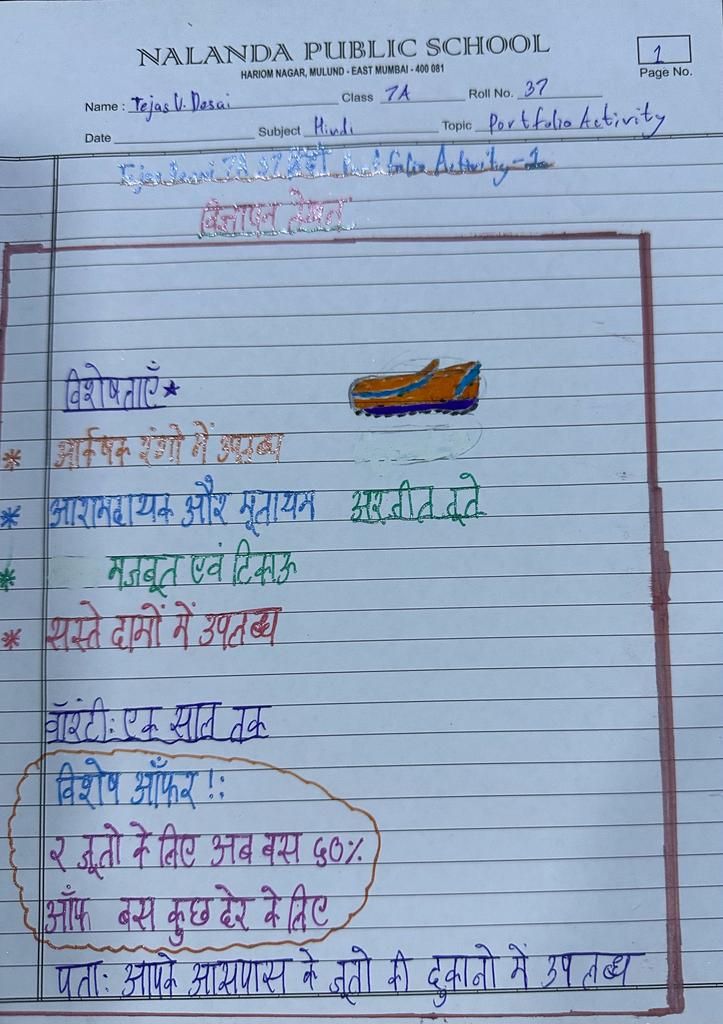 NALANDA PUBLIC SCHOOL
HARIOM NAGAR, MULUND - EAST MUMBAI - 400 081
1
Page No.
Name : Tejas V. Desai Class 7A Roll No. 37
Date Subject Hindi Topic Portfolio Activity
Tejas Desai 7A 37 Portfolio Activity-1
विज्ञापन लेखन
विशेषताएँ ★
* आर्कषक रंगो में उपलब्ध
* आरामदायक और मूलायम
अरजीत जूते
* मजबूत एवं टिकाऊ
* सस्ते दामों में उपलब्ध
वॉरंटी: एक साल तक
विशेष ऑफर!:
२ जूतो के लिए अब बस ६०%
ऑफ बस कुछ देर के लिए
पता: आपके आसपास के जूतो की दुकानो में उपलब्ध